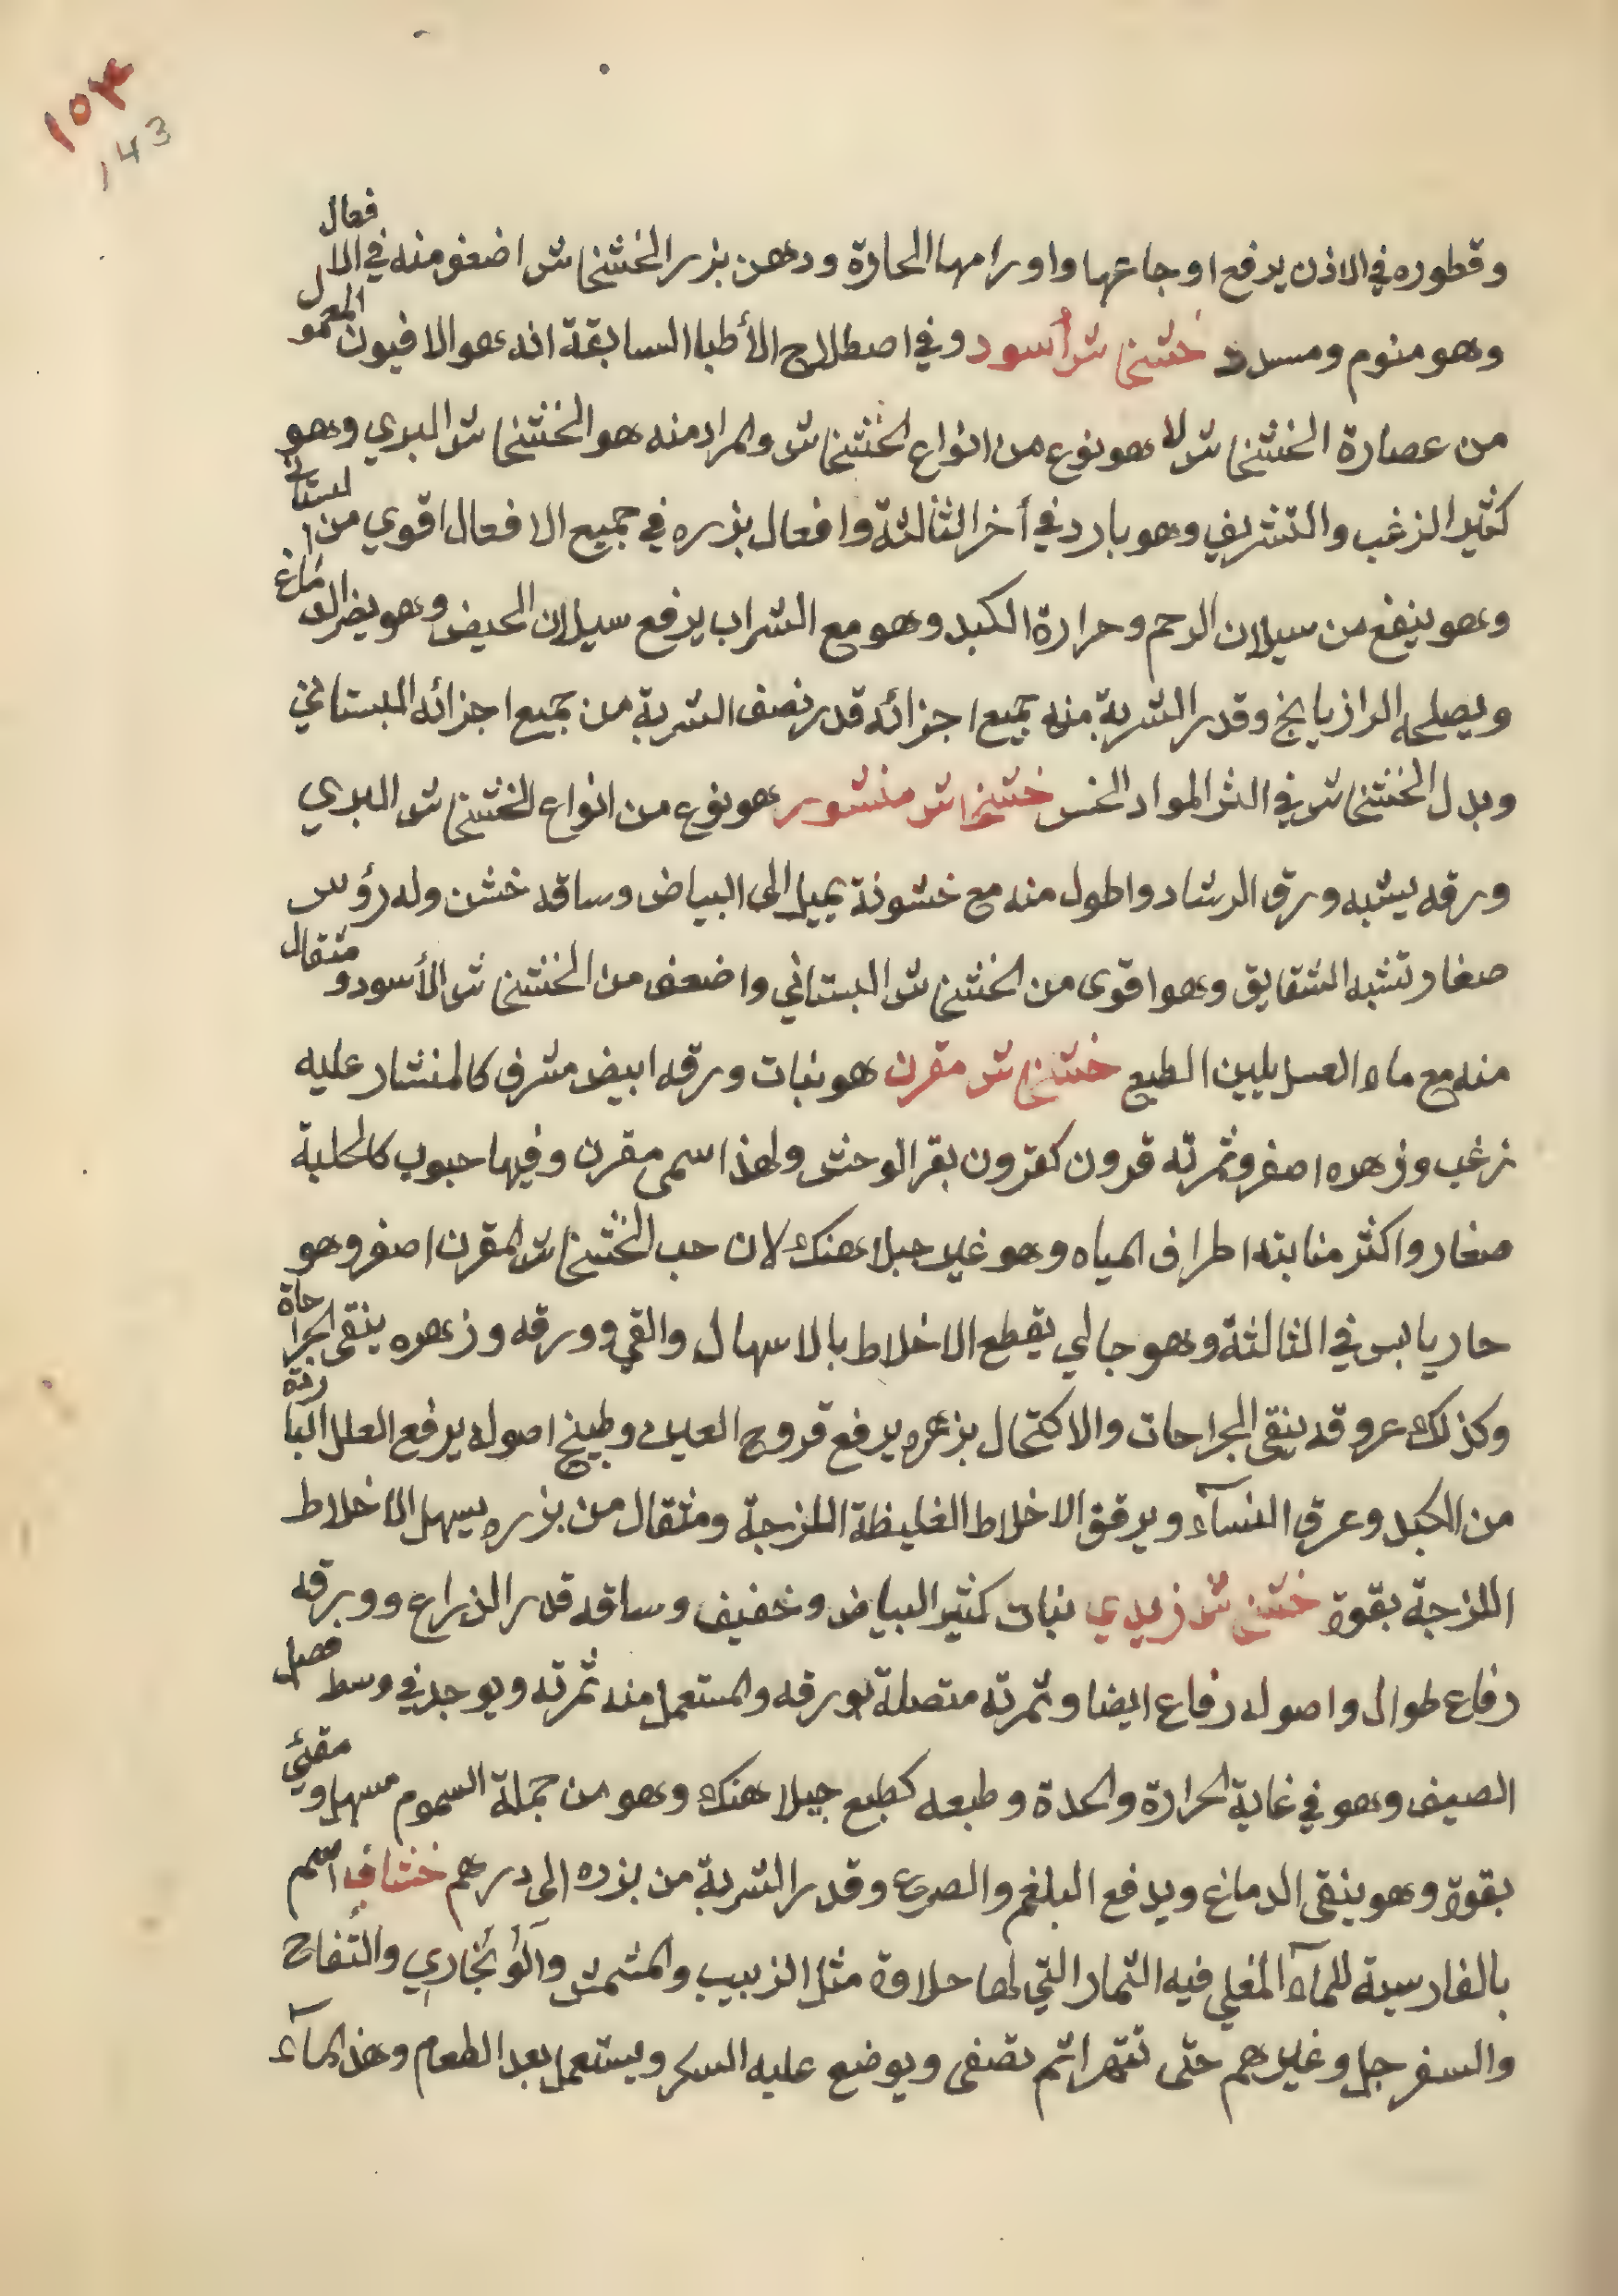 ١٥٣
143
وقطوره في الاذن يرفع اوجاعها واورامها الحارة ودهن بزر الخشخاش اضعف منه في الافعال
وهو منوم ومسدد خشخاش أسود وفي اصطلاح الأطبا السابقة انه هو الافيون المعمول
من عصارة الخشخاش لا هو نوع من انواع الخشخاش والمراد منه هو الخشخاش البري وهو
كثير الزغب والتشريف وهو بارد في أخر الثالثة وافعال بزره في جميع الافعال اقوي من البستاني
وهو ينفع من سيلان الرحم وحرارة الكبد وهو مع الشراب يرفع سيلان الحيض وهو يضر الدماغ
ويصلحه الرازيانج وقدر الشربة منه جميع اجزائه قدر نصف الشربة من جميع اجزائه البستاني
وبدل الخشخاش في اكثر المواد الخس خشخاش منثور هو نوع من انواع الخشخاش البري
ورقه يشبه ورق الرشاد واطول منه مع خشونة يميل الى البياض وساقه خشن وله رؤس
صغار تشبه الشقايق وهو اقوى من الخشخاش البستاني واضعف من الخشخاش الأسود ومثقال
منه مع ماء العسل يلين الطبع خشخاش مقرن هو نبات ورقه ابيض مشرف كالمنشار عليه
زغب وزهره اصفر وثمرته قرون كقرون بقر الوحش ولهذا سمى مقرن وفيها حبوب كالحلبة
صغار واكثر منابته اطراف المياه وهو غير جبلاهنك لان حب الخشخاش المقرن اصفر وهو
حار يابس في الثالثة وهو جالي يقطع الاخلاط بالاسهال والقي وورقه وزهره ينقى الجراحاة
وكذلك عروقه ينقى الجراحات والاكتحال بزهره يرفع قروح العين وطبيخ اصوله يرفع العلل الباردة
من الكبد وعرق النسآء ويرقق الاخلاط الغليظة اللزجة ومثقال من بزره يسهل الاخلاط
اللزجة بقوة خشخاش زبدي نبات كثير البياض وخفيف وساقه قدر الذراع وورقه
رفاع طوال واصوله رفاع ايضا وثمرته متصلة بورقه والمستعمل منه ثمرته ويوجد في وسط فصل
الصيف وهو في غاية الحرارة والحدة وطبعه كطبع جبلاهنك وهو من جملة السموم مسهل ومقئي
بقوة وهو ينقى الدماغ ويدفع البلغم والصرع وقدر الشربة من بزره الى درهم خشاف اسم
بالفارسية للمآء المغلي فيه الثمار التي لها حلاوة مثل الزبيب والمشمش وآلؤ بخاري والتفاح
والسفرجل وغيرهم حتى تتهرا ثم تصفى ويوضع عليه السكر ويستعمل بعد الطعام وهذا المآء